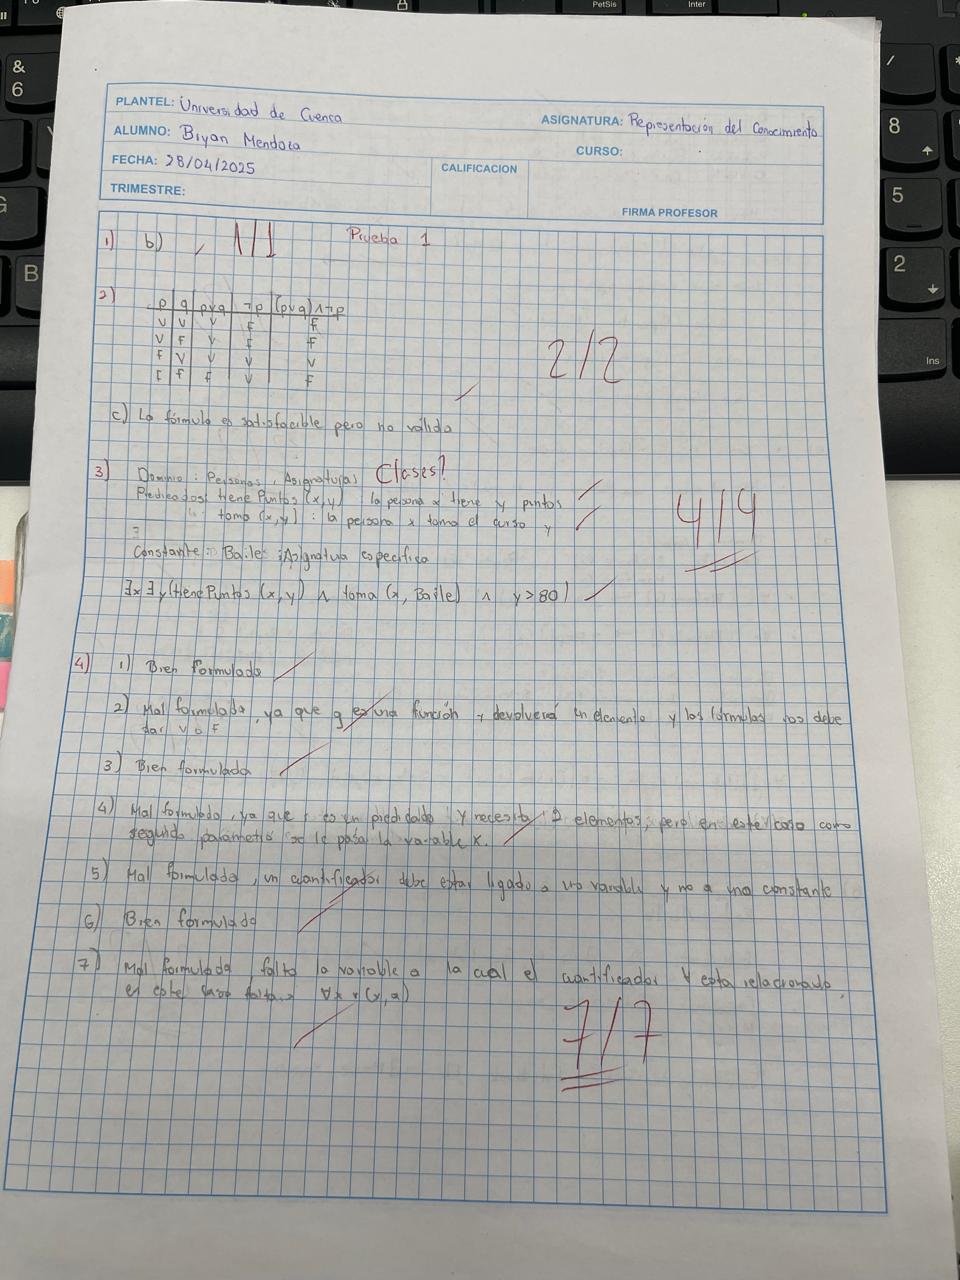 PetSis
Inter
&
6
B
/
8
5
2
Ins
PLANTEL: Universidad de Cuenca
ASIGNATURA: Representación del Conocimiento
ALUMNO: Bryan Mendoza
CURSO:
FECHA: 28/04/2025
CALIFICACION
TRIMESTRE:
FIRMA PROFESOR
1) b) 1/1 Prueba 1
2)
p q pvq ¬p (pvq)∧¬p
V V V F F
V F V F F
F V V V V
F F F V F
2/2
c) La fórmula es satisfacible pero no válida
3) Dominio: Personas, Asignaturas Clases?
Predicados: tiene Puntos (x,y) la persona x tiene y puntos
toma (x,y): la persona x toma el curso y
4/4
Constante: Baile: Asignatura específica
∃x∃y(tiene Puntos (x,y) ∧ toma (x, Baile) ∧ y>80)
4) 1) Bien formulado
2) Mal formulada, ya que g es una función y devolverá un elemento y las fórmulas nos debe
dar V o F
3) Bien formulada
4) Mal formulado, ya que r es un predidado y necesita 2 elementos, pero en este caso como
segundo parametro se le pasa la variable x.
5) Mal formulada, un cuantificador debe estar ligado a una variable y no a una constante
6) Bien formulada
7) Mal formulada, falta la variable a la cual el cuantificador ∀ esta relacionado,
en este caso falta ∀x r(x,a)
7/7